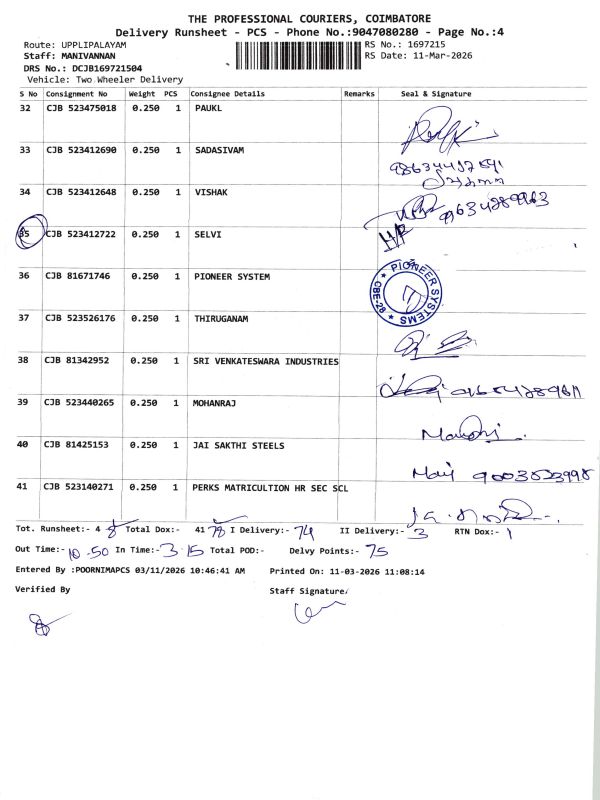 THE PROFESSIONAL COURIERS, COIMBATORE
Delivery Runsheet - PCS - Phone No.:9047080280 - Page No.:4
Route: UPPLIPALAYAM RS No.: 1697215
Staff: MANIVANNAN RS Date: 11-Mar-2026
DRS No.: DCJB169721504
Vehicle: Two Wheeler Delivery
S No Consignment No Weight PCS Consignee Details Remarks Seal & Signature
32 CJB 523475018 0.250 1 PAUKL
33 CJB 523412690 0.250 1 SADASIVAM
34 CJB 523412648 0.250 1 VISHAK
35 CJB 523412722 0.250 1 SELVI
36 CJB 81671746 0.250 1 PIONEER SYSTEM
PIONEER SYSTEMS CBE-28
37 CJB 523526176 0.250 1 THIRUGANAM
38 CJB 81342952 0.250 1 SRI VENKATESWARA INDUSTRIES
39 CJB 523440265 0.250 1 MOHANRAJ
40 CJB 81425153 0.250 1 JAI SAKTHI STEELS
41 CJB 523140271 0.250 1 PERKS MATRICULTION HR SEC SCL
Tot. Runsheet:- 4 Total Dox:- 41 78 I Delivery:- 74 II Delivery:- 3 RTN Dox:- 1
Out Time:- 10.50 In Time:- 3.15 Total POD:- Delvy Points:- 75
Entered By :POORNIMAPCS 03/11/2026 10:46:41 AM Printed On: 11-03-2026 11:08:14
Verified By Staff Signature/